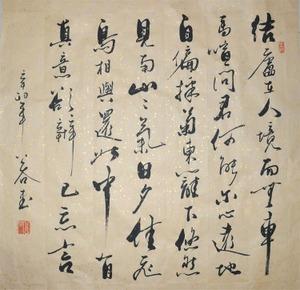 結廬在人境而無車
馬喧問君何能尔心遠地
自偏採菊東籬下悠然
見南山々氣日夕佳飛
鳥相與還此中有
真意欲辯已忘言
辛卯年